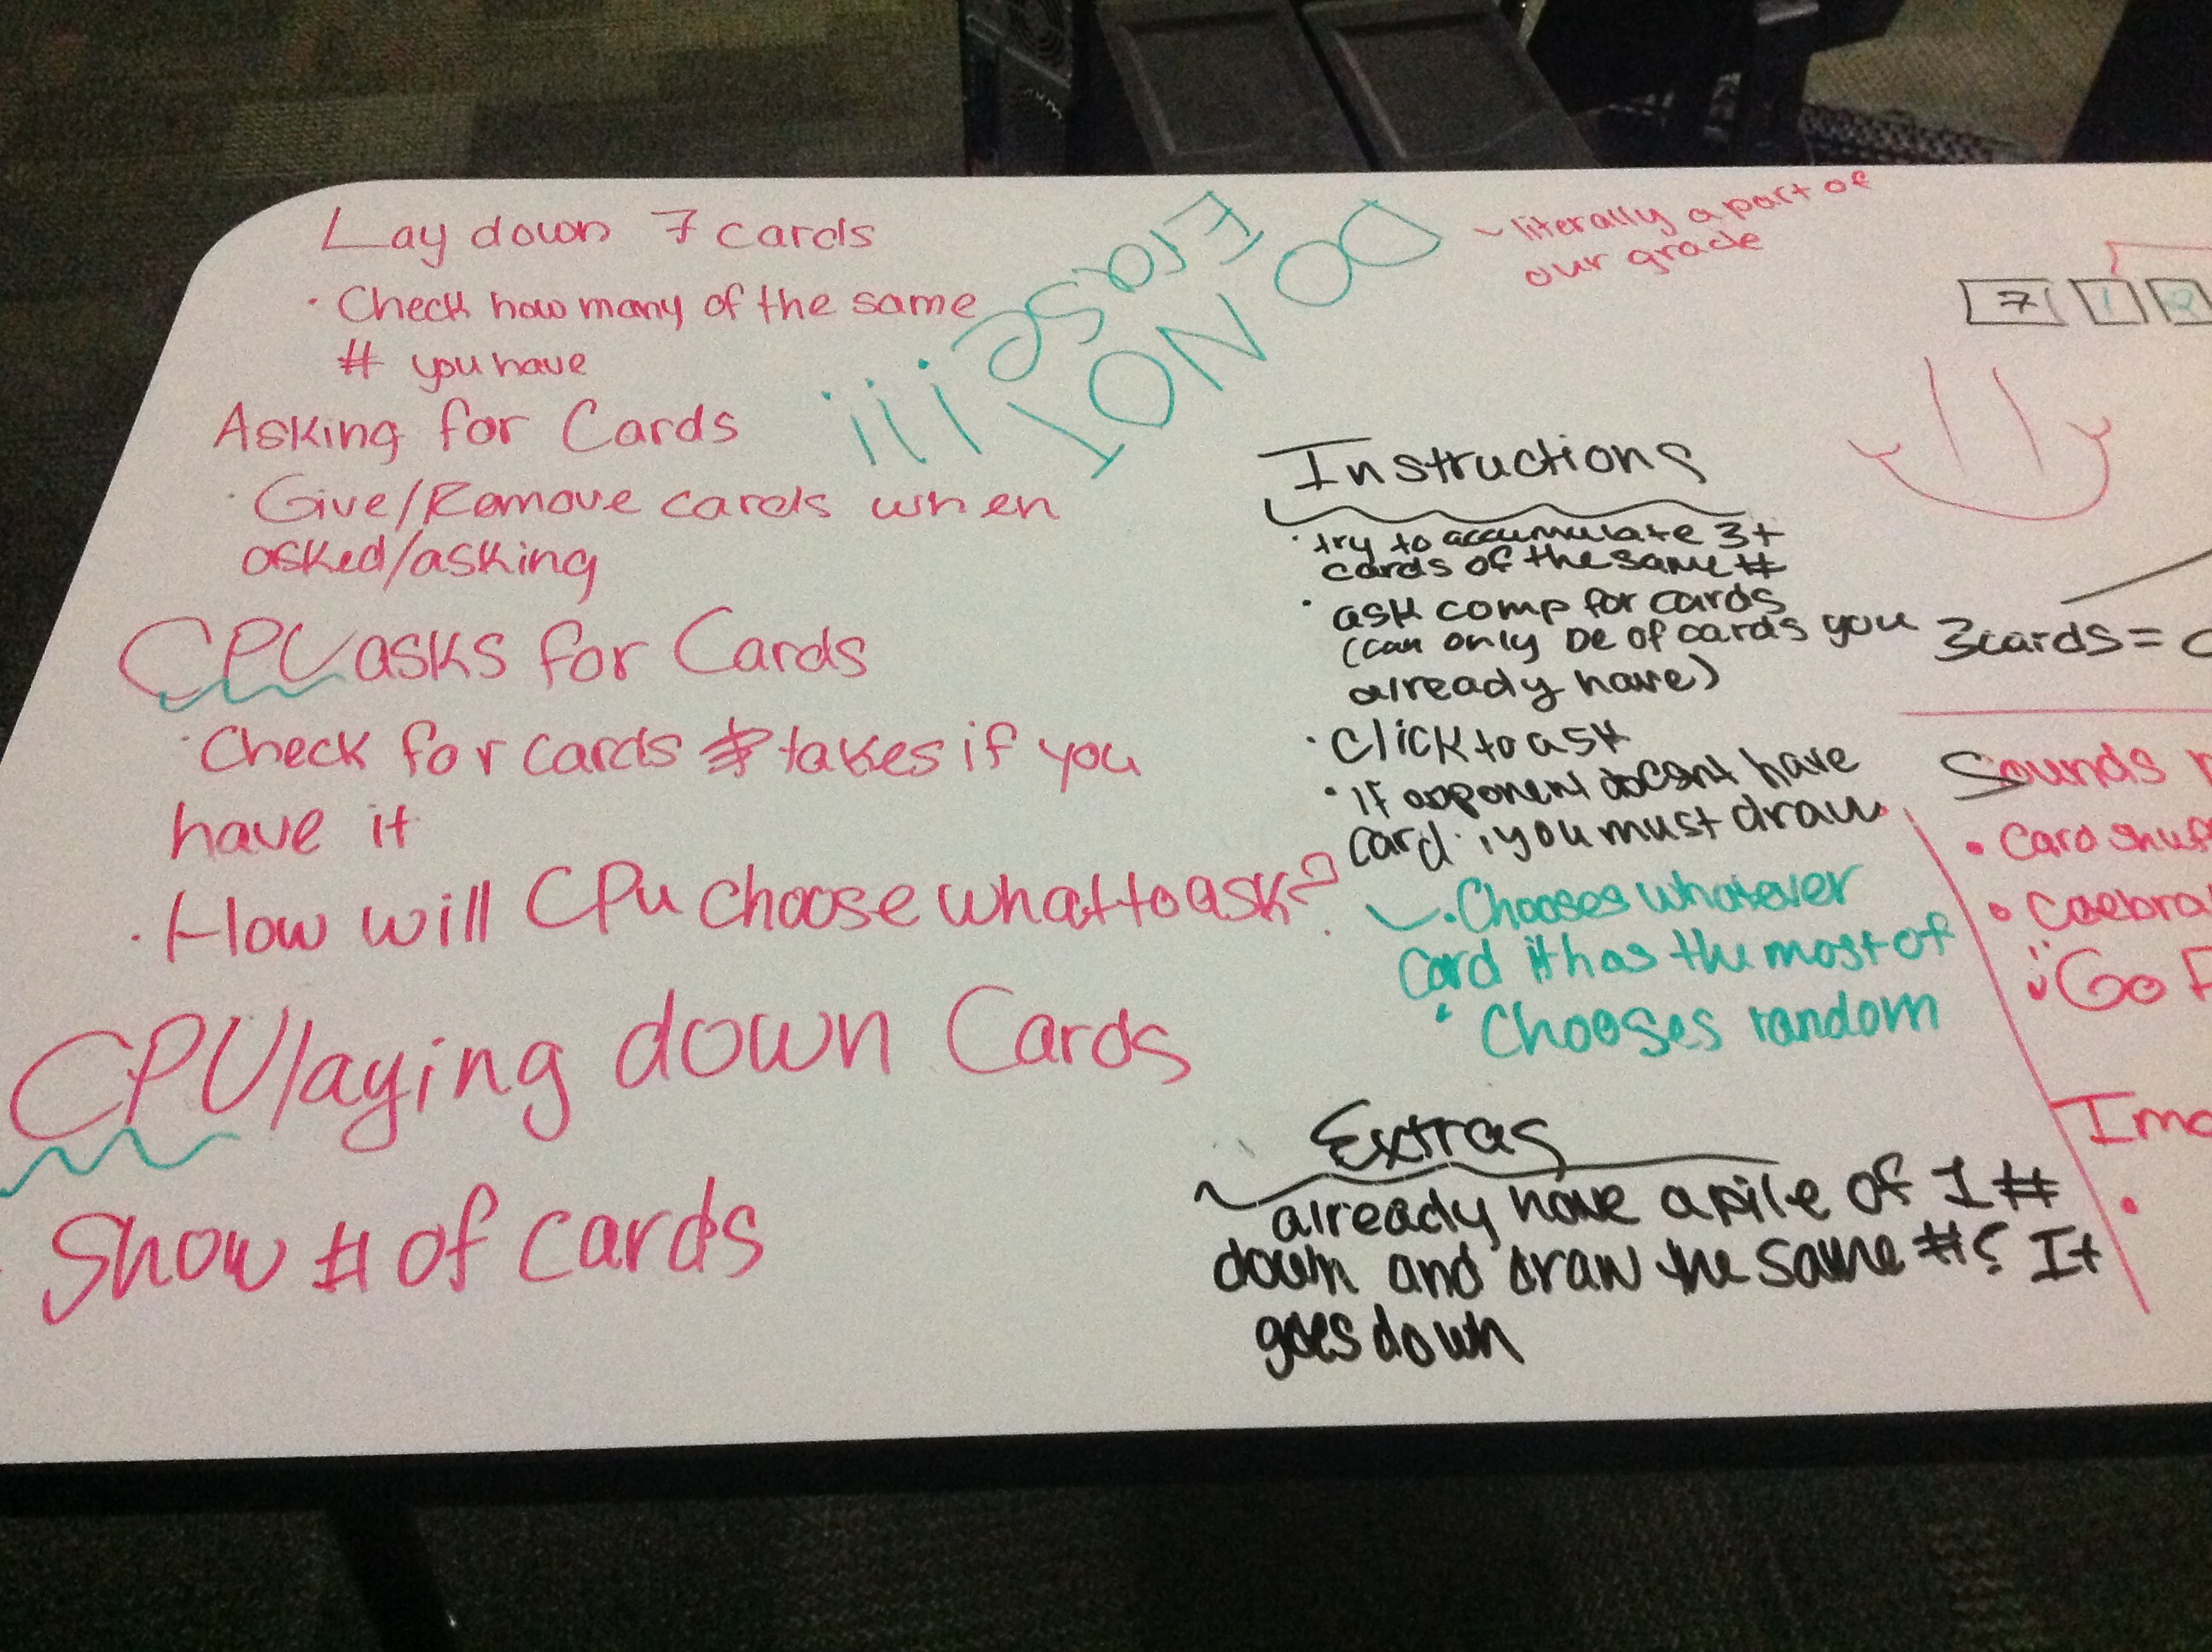 Lay down 7 cards
· Check how many of the same
# you have
Asking for Cards
· Give/Remove cards when
asked/asking
CPU asks for Cards
· Check for cards & takes if you
have it
· How will CPU choose what to ask?
CPU laying down Cards
Show # of cards
DO NOT
Erase !!!
~literally a part of
our grade
7 1 2
Instructions
· try to accumulate 3+
cards of the same #
· ask comp for cards
(can only be of cards you
already have)
· Click to ask
· if opponent doesnt have
card, you must draw
· Chooses whatever
card it has the most of
· Chooses random
Extras
already have a pile of 1 #
down and draw the same #? It
goes down
3 cards =
Sounds
• Card
•
"Go